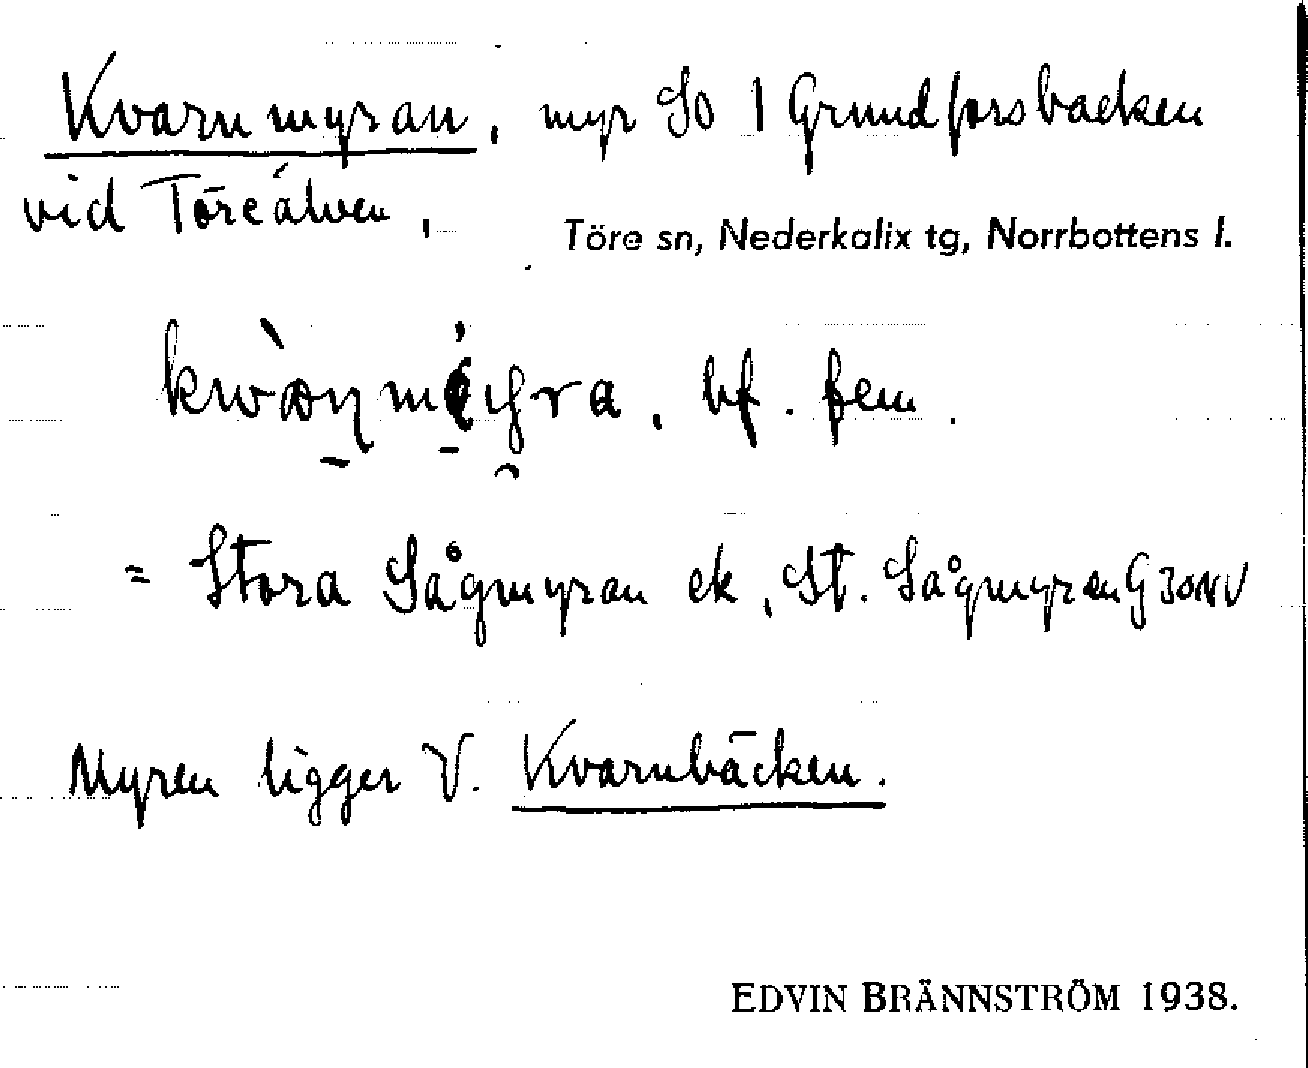 Kvarnmyran, myr SO 1 Grundforsbacken
vid Töreälven,
Töre sn, Nederkalix tg, Norrbottens l.
bf. fem.
= Stora Sågmyran ek, St. Sågmyran G 30 NV
Myren ligger V. Kvarnbäcken.
EDVIN BRÄNNSTRÖM 1938.